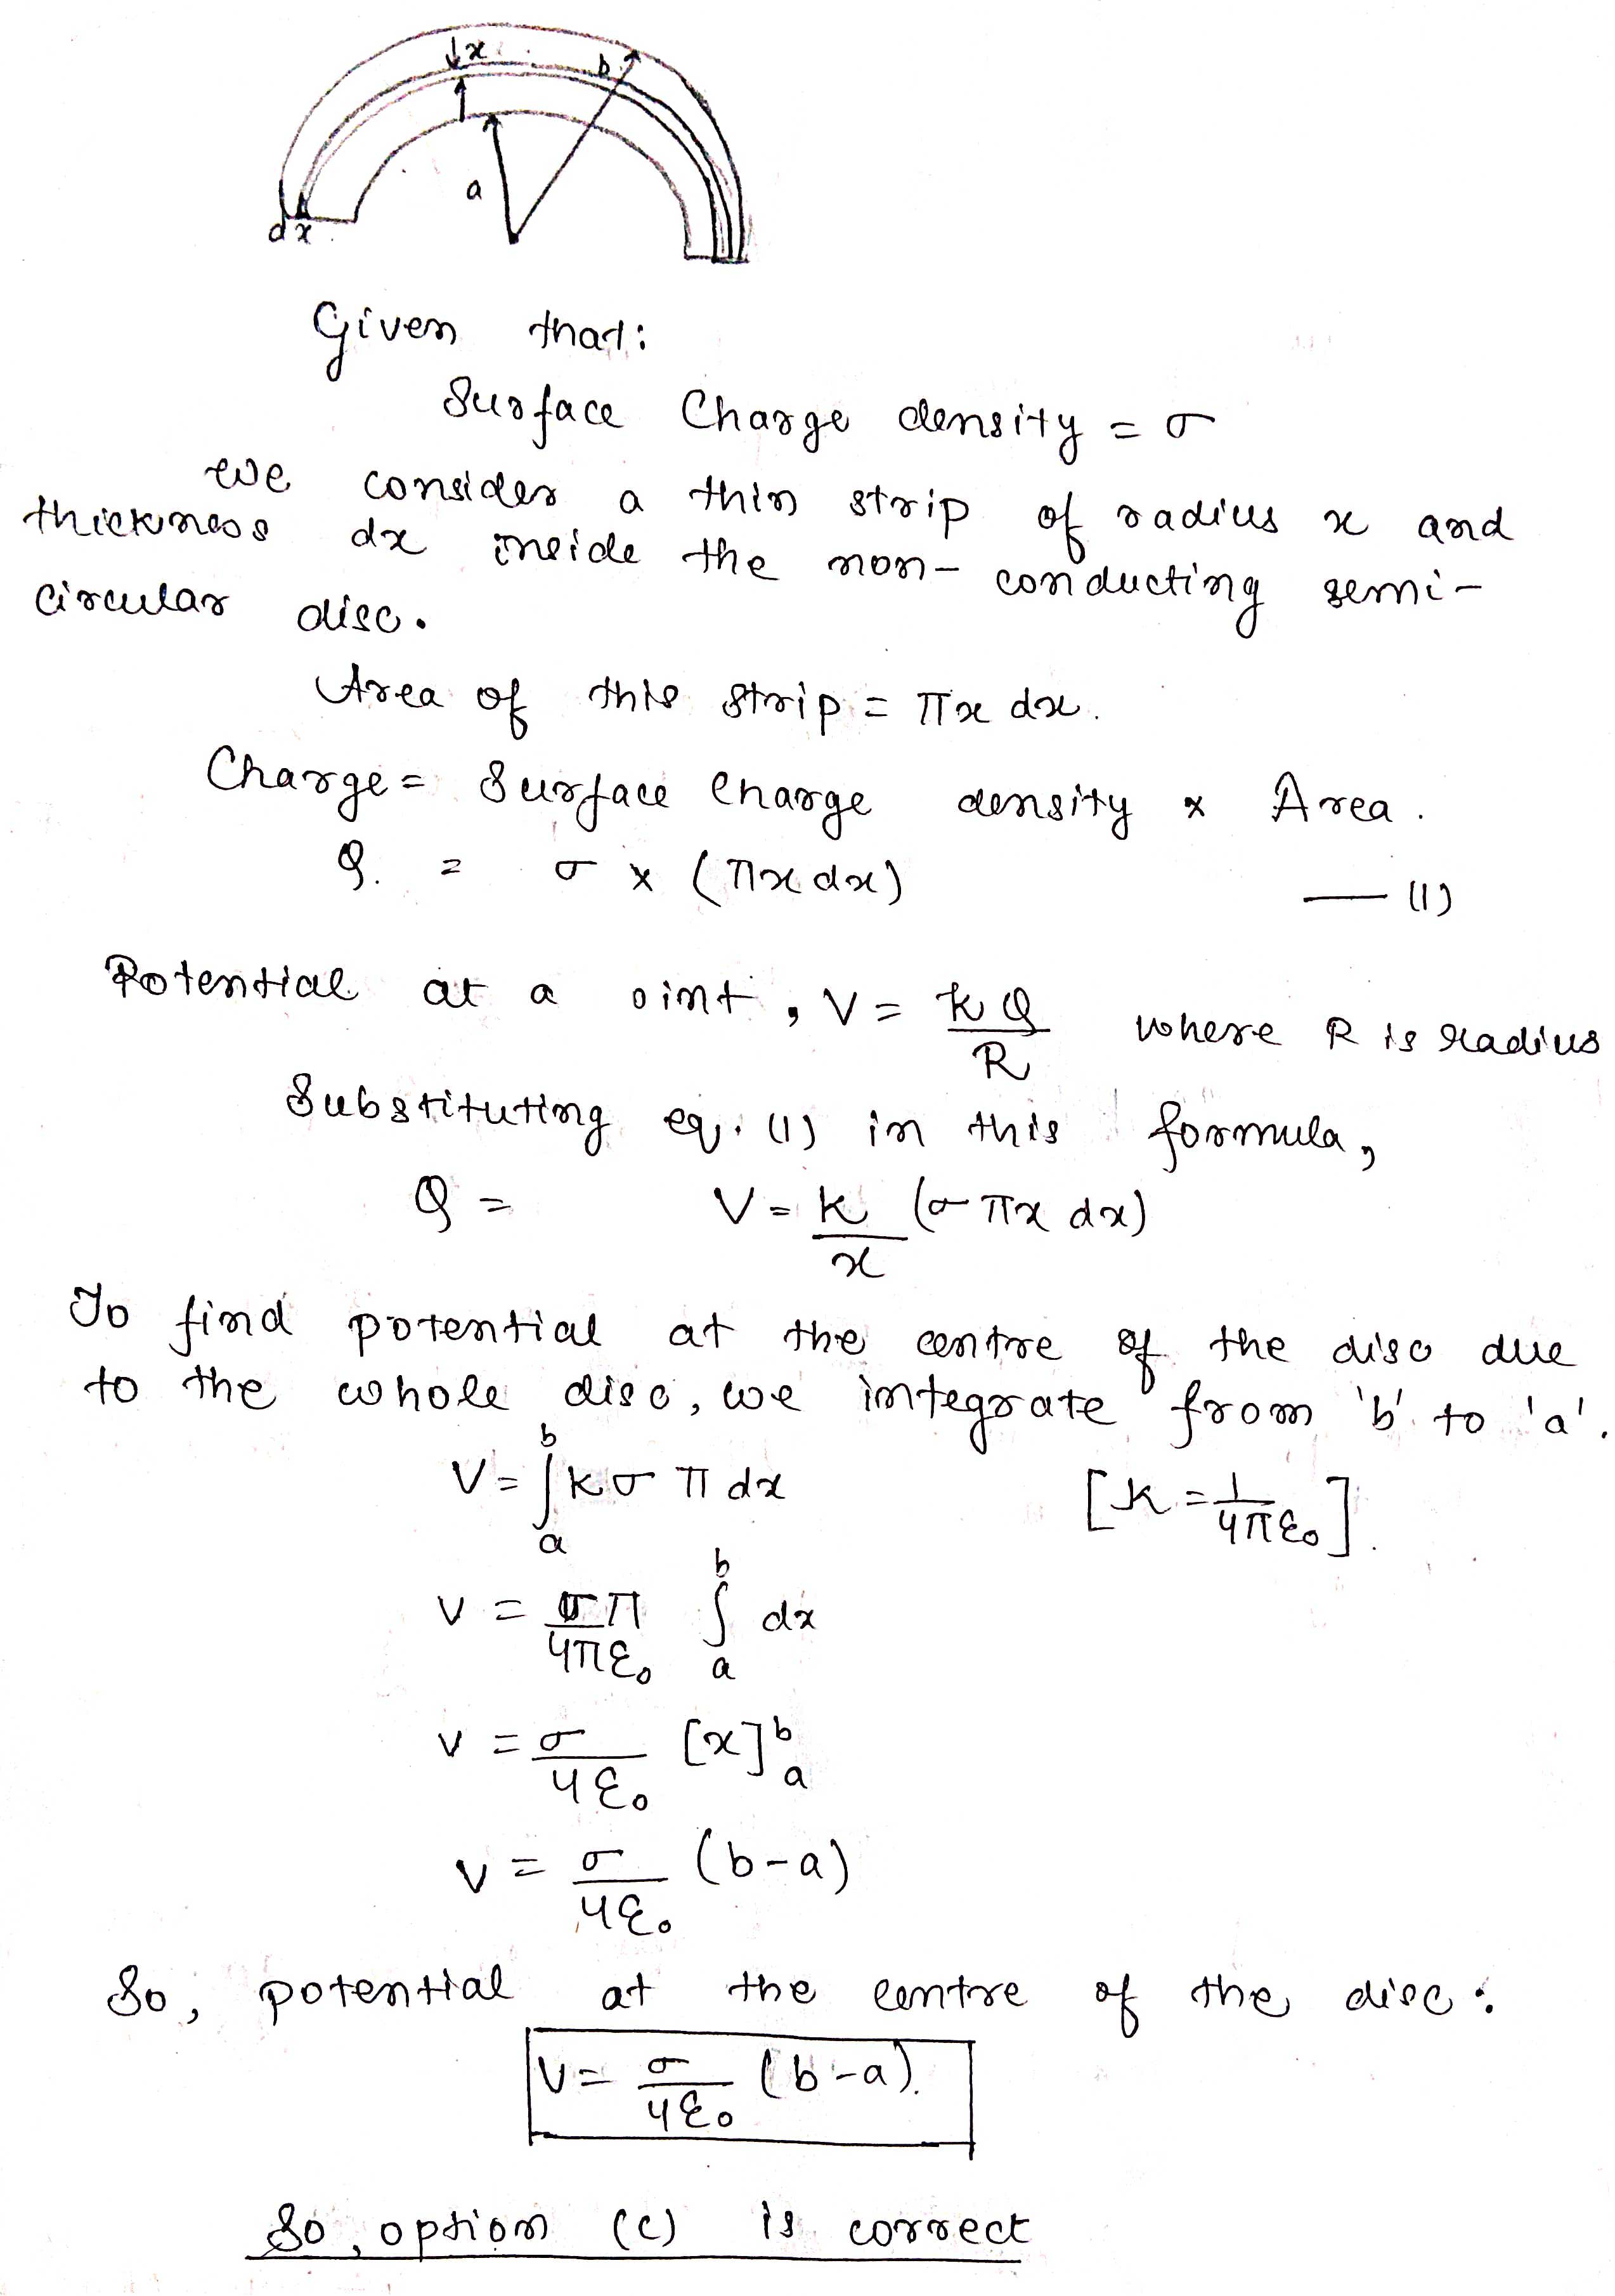 x
b
a
dx
Given that:
Surface Charge density = σ
we consider a thin strip of radius x and
thickness dx inside the non-conducting semi-
circular disc.
Area of this strip = πx dx.
Charge = Surface charge density x Area.
Q. = σ x (πx dx) — (1)
Potential at a oint, V = kQ/R where R is radius
Substituting eq. (1) in this formula,
Q = V = k/x (σ πx dx)
To find potential at the centre of the disc due
to the whole disc, we integrate from 'b' to 'a'.
V = ∫ₐᵇ k σ π dx [k = 1/4πε₀].
V = σπ/4πε₀ ∫ₐᵇ dx
V = σ/4ε₀ [x]ᵇₐ
V = σ/4ε₀ (b-a)
So, potential at the centre of the disc:
V = σ/4ε₀ (b-a).
So, option (c) is correct